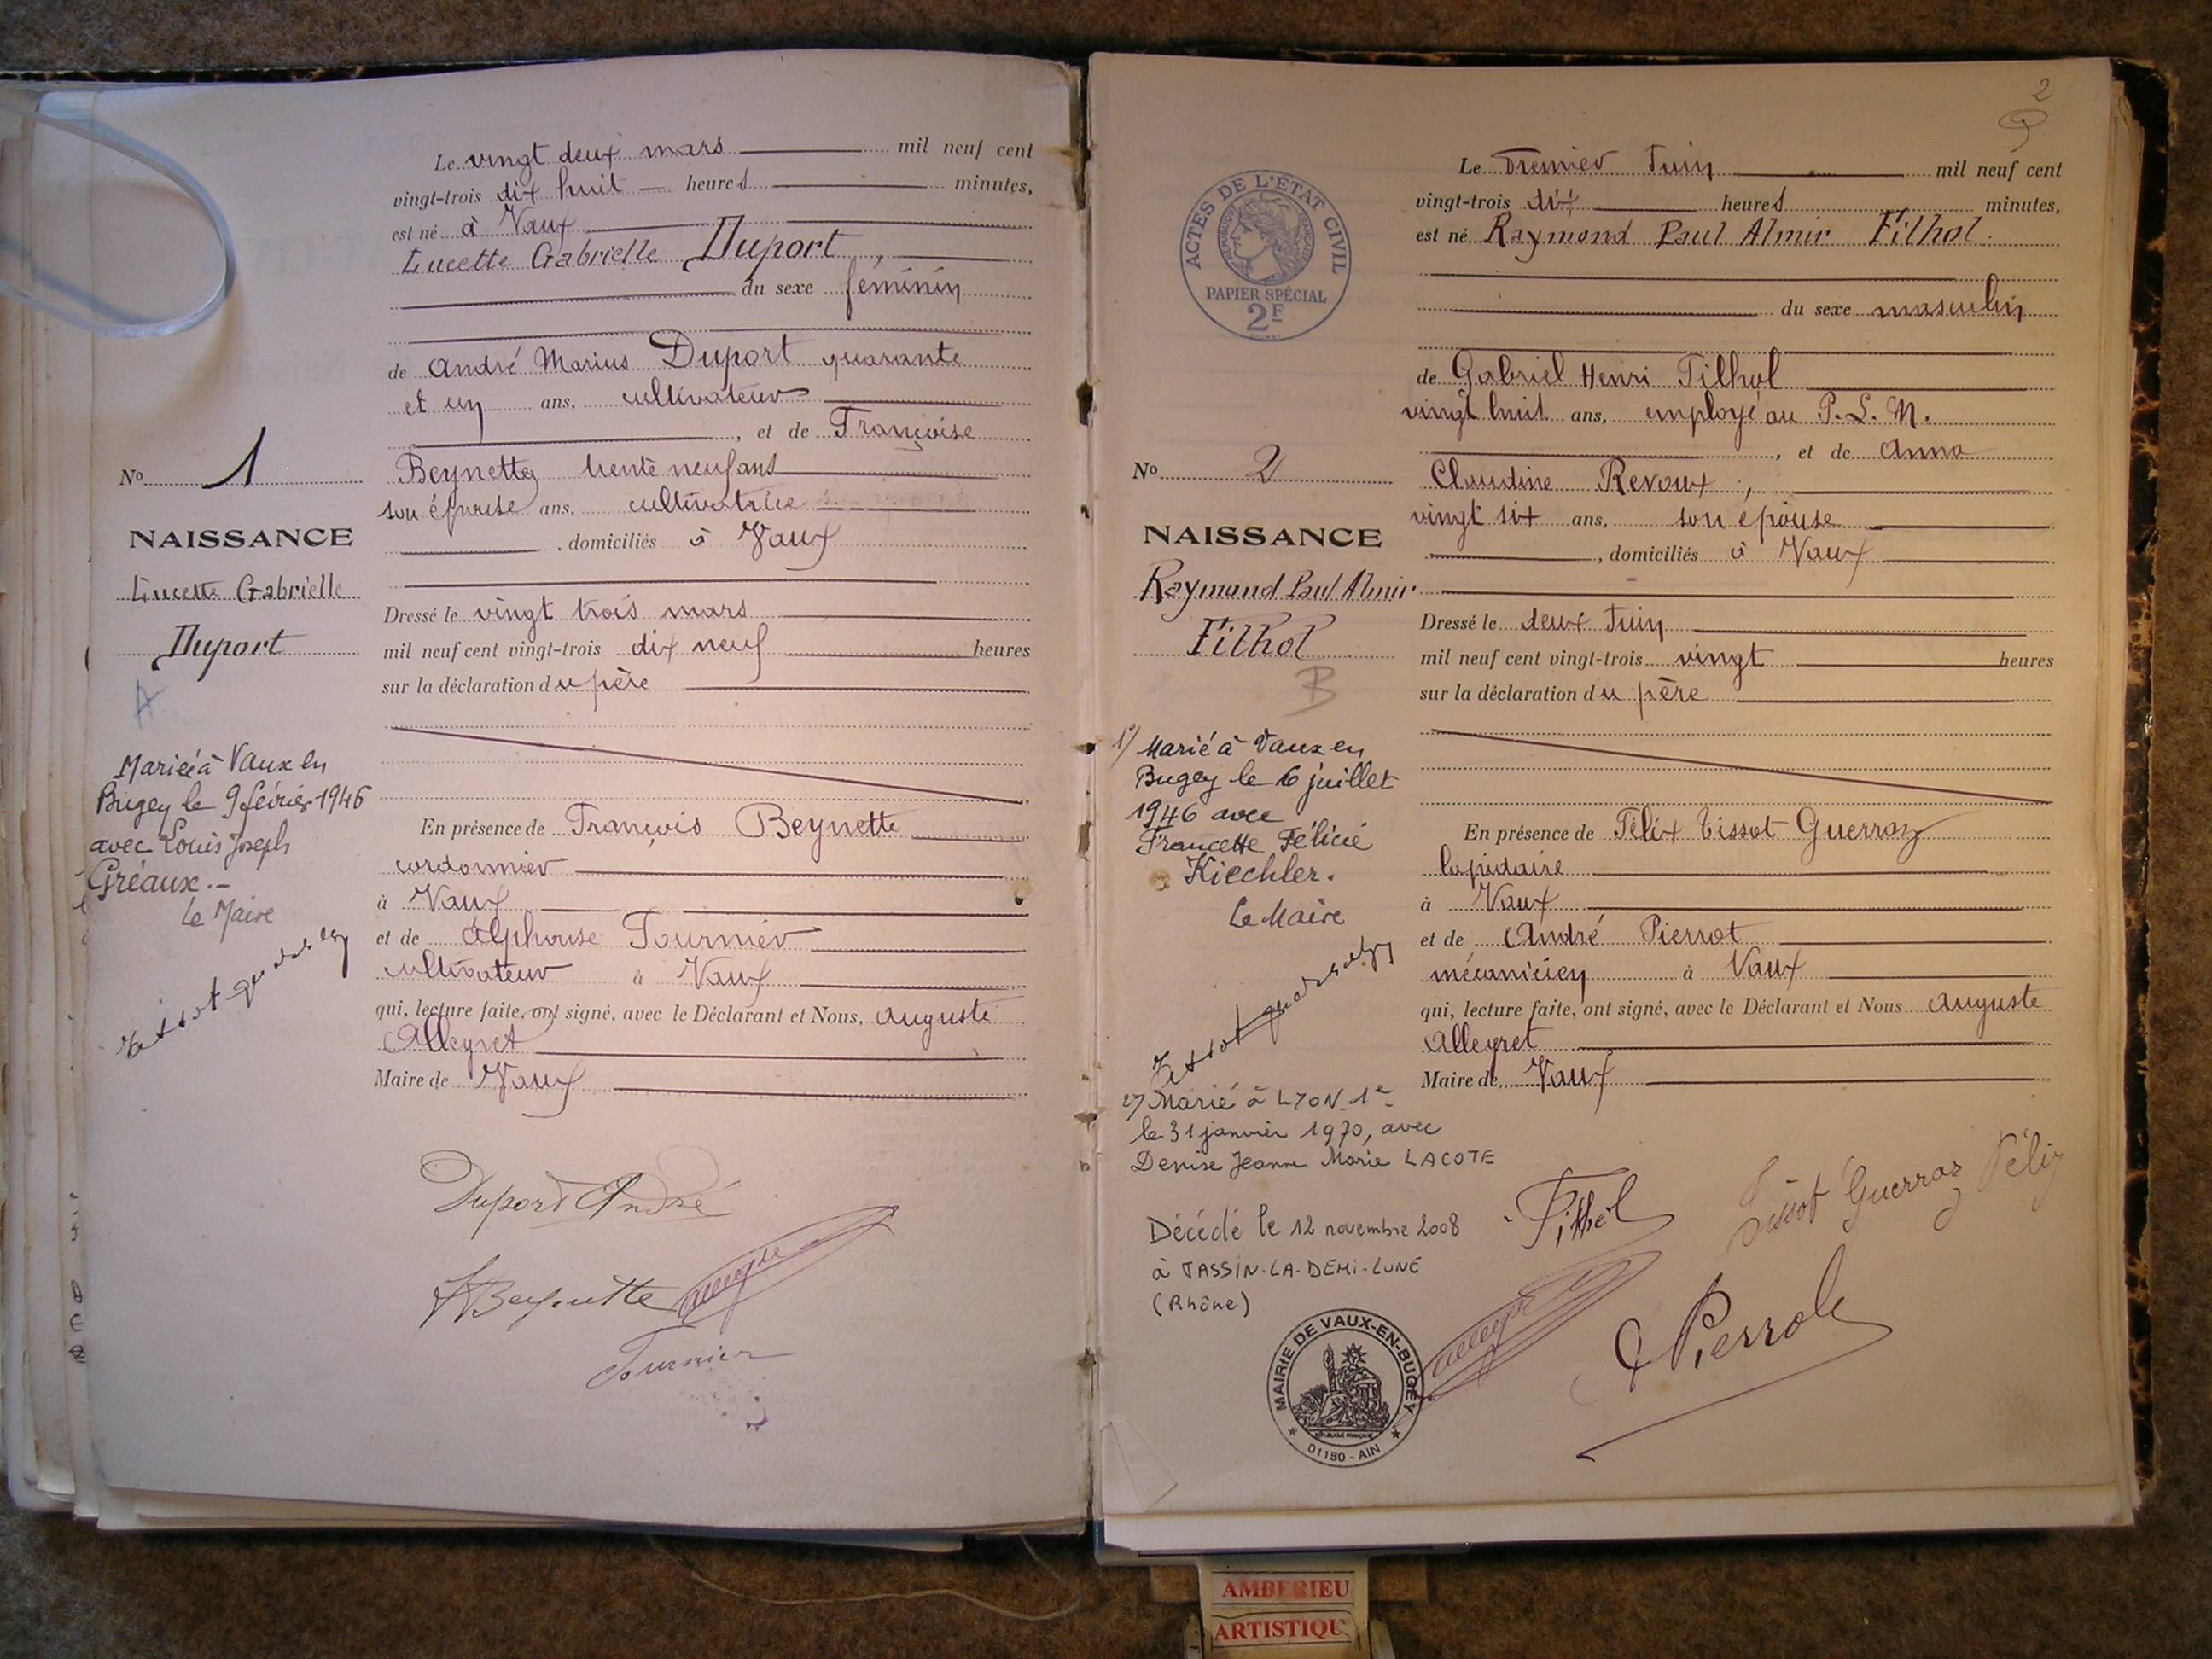 Le vingt deux mars mil neuf cent
vingt-trois dix huit heures minutes,
est né à Vaux
Lucette Gabrielle Duport,
du sexe féminin
de André Marius Duport quarante
et un ans, cultivateur
, et de Françoise
Beynette trente neuf ans
son épouse ans, cultivatrice
, domiciliés à Vaux
Dressé le vingt trois mars
mil neuf cent vingt-trois dix neuf heures
sur la déclaration du père
En présence de François Beynette
cordonnier
à Vaux
et de Alphonse Fournier
cultivateur à Vaux
qui, lecture faite, ont signé, avec le Déclarant et Nous, Auguste
Alleyret
Maire de Vaux
No 1
NAISSANCE
Lucette Gabrielle
Duport
A
Mariée à Vaux en
Bugey le 9 février 1946
avec Louis Joseph
Gréaux.-
Le Maire
Duport André
Beynette
Fournier
2
Le Premier Juin mil neuf cent
vingt-trois dix heures minutes,
est né Raymond Paul Almir Filhol.
du sexe masculin
de Gabriel Henri Filhol
vingt huit ans, employé au P.L.M.
, et de Anna
Claudine Revoux,
vingt six ans, son épouse
, domiciliés à Vaux
Dressé le deux Juin
mil neuf cent vingt-trois vingt heures
sur la déclaration du père
En présence de Félix Tissot Guerraz
lapidaire
à Vaux
et de André Pierrot
mécanicien à Vaux
qui, lecture faite, ont signé, avec le Déclarant et Nous Auguste
Alleyret
Maire de Vaux
ACTES DE L'ETAT CIVIL
PAPIER SPÉCIAL
2F
No 2
NAISSANCE
Raymond Paul Almir
Filhol
B
1°/ Marié à Vaux en
Bugey le 6 juillet
1946 avec
Francette Félicie
Kiechler.
Le Maire
2°/ Marié à LYON-1e
le 31 janvier 1970, avec
Denise Jeanne Marie LACOTE
Décédé le 12 novembre 2008
à TASSIN-LA-DEMI-LUNE
(Rhône)
MAIRIE DE VAUX-EN-BUGEY
RÉPUBLIQUE FRANÇAISE
01150 - AIN
Filhol
Tissot Guerraz Félix
Pierrot
AMBERIEU
ARTISTIQU